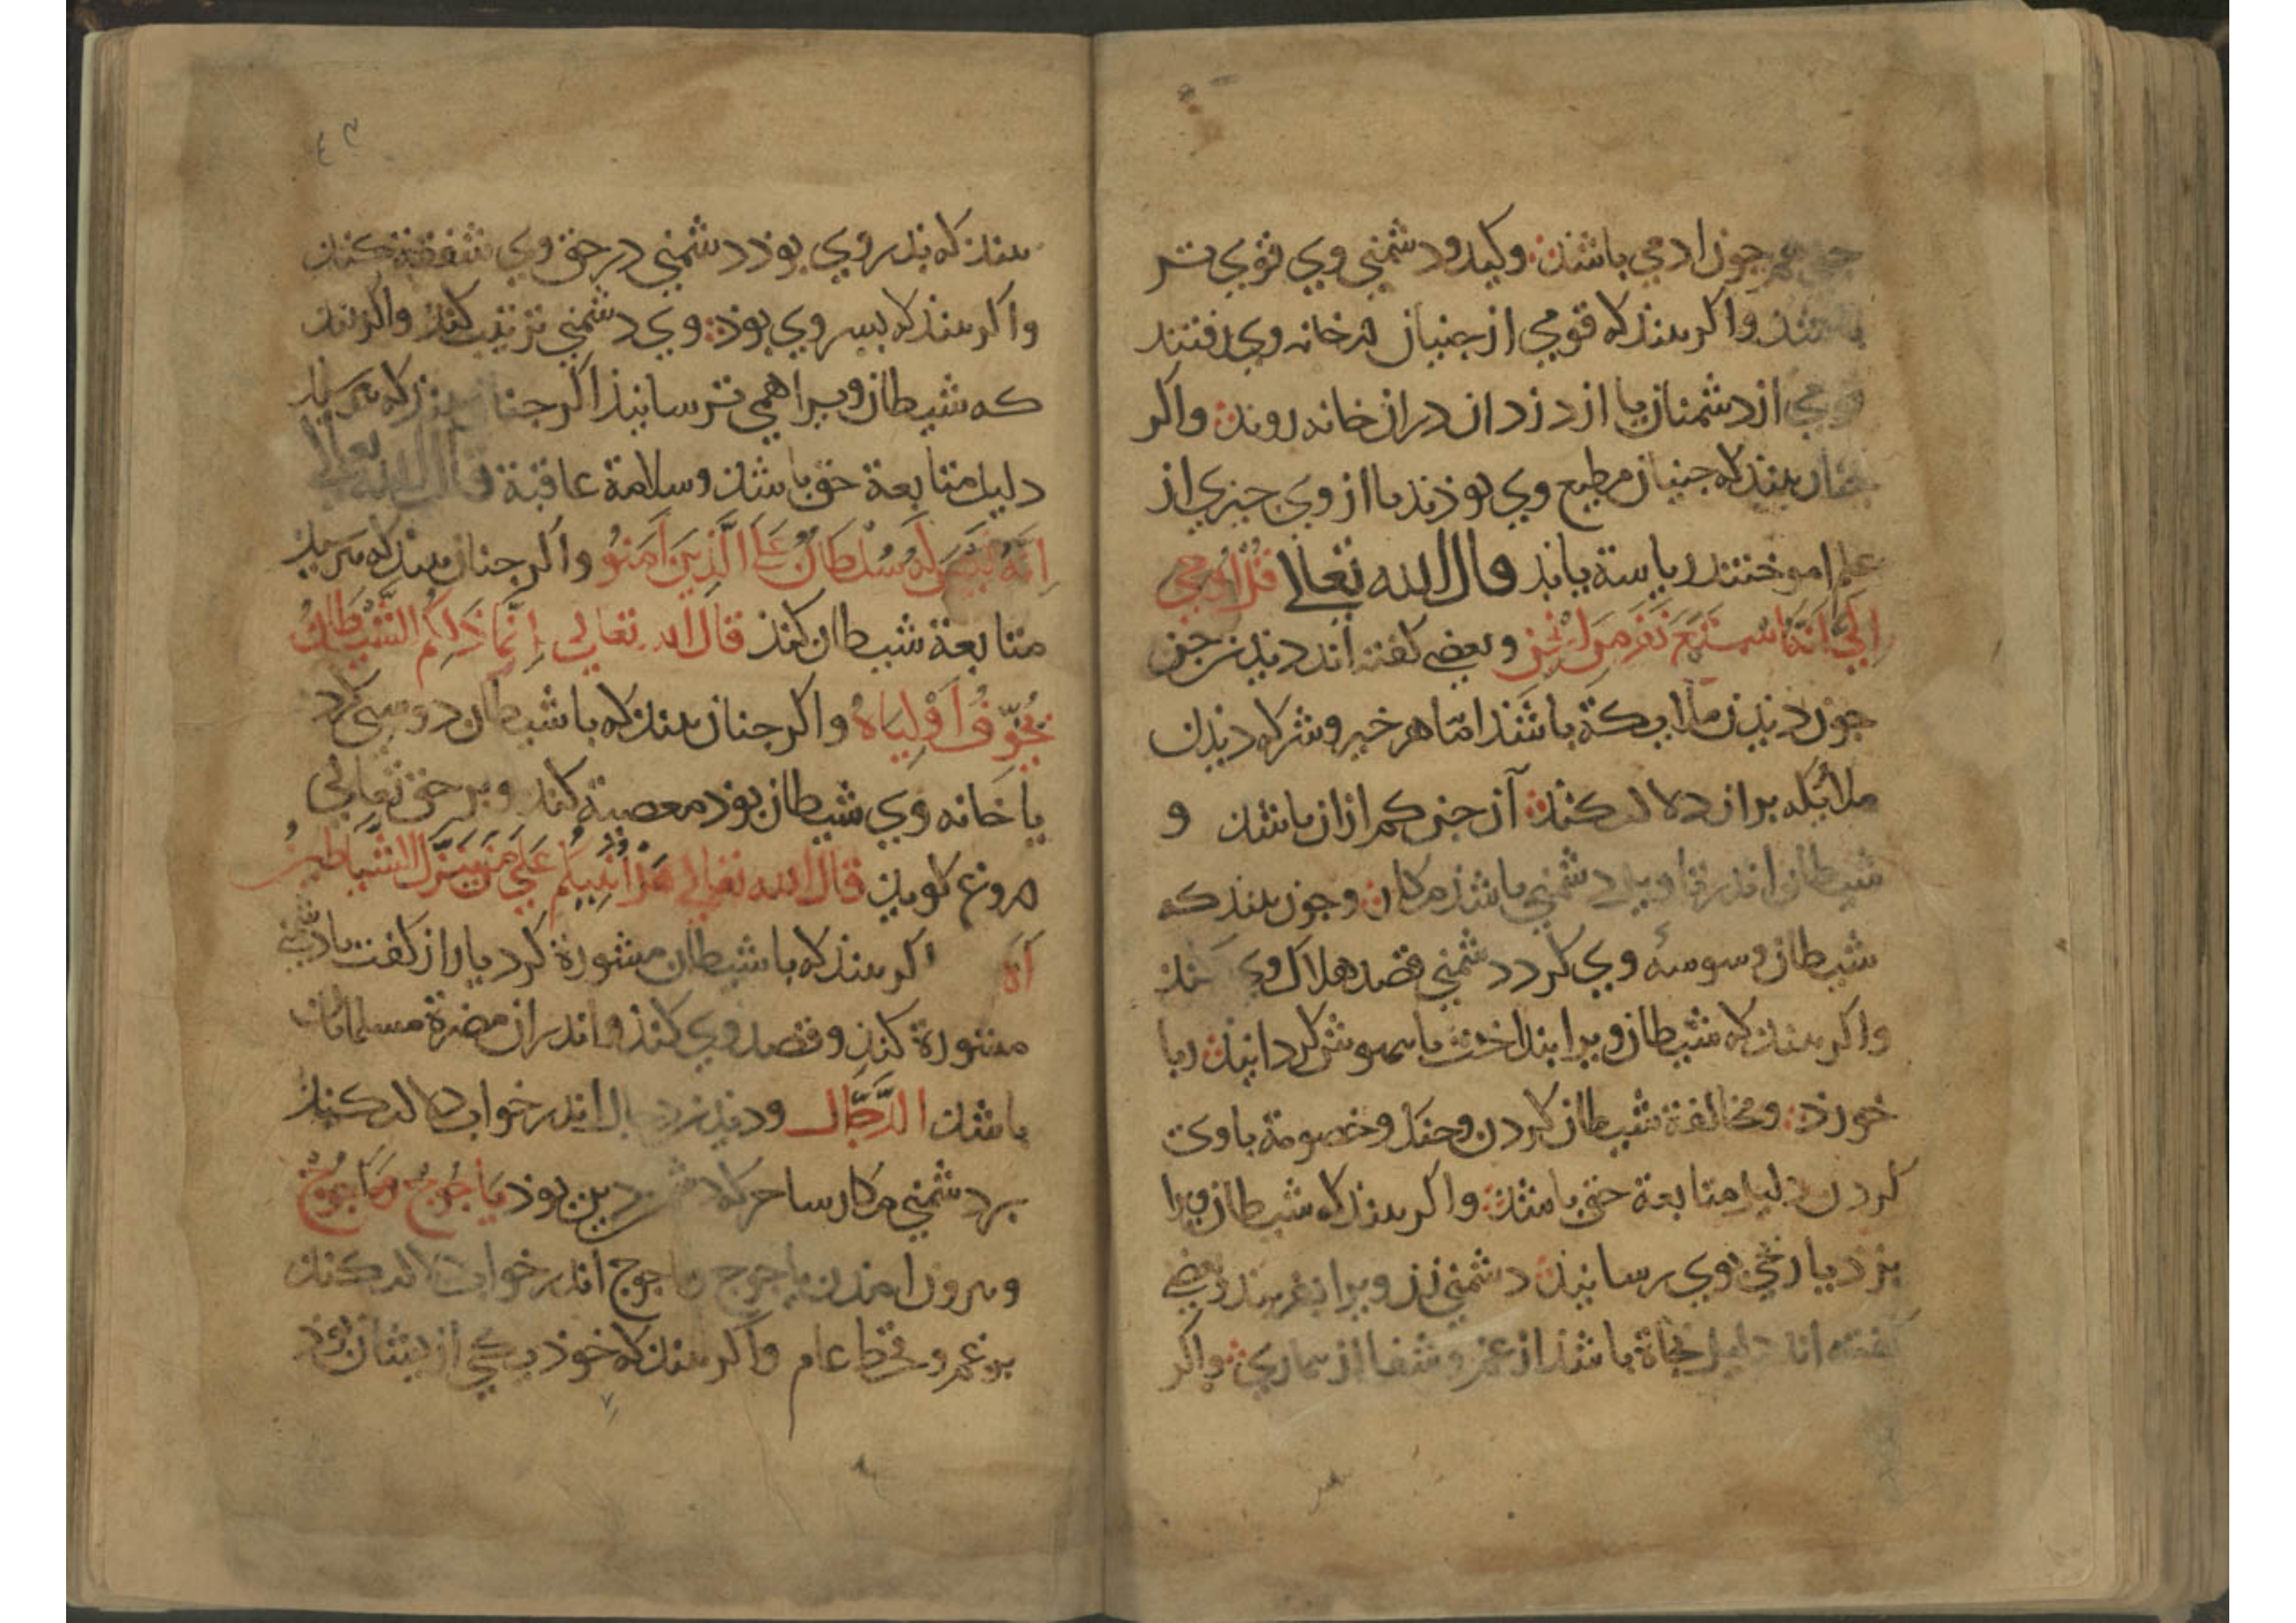 چون ادمي باشذ وکید ودشمني وي قوي تر
واکر بیند که قومي از جنیان در خانه وي رفتند
قومي از دشمنان یا از دزدان دران خانه روند واکر
جنان بیند که جنیان مطیع وي بوذند یا از وي جیزي از
علم اموختند ریاسة یابذ قال الله تعالی قُلْ اُوحِيَ
اِلَيَّ اَنَّهُ اسْتَمَعَ نَفَرٌ مِنَ الْجِنِّ وبعضي کفته اند دیذن جن
جون دیذن ملایکة باشذ اما هر خیر وشر که دیذن
ملائکه بران دلالت کنذ آن جن کم ازان باشذ و
شیطان اندر تاویل دشمني باشذ مکار وجون بیند که
شیطان وسوسه وي کرد دشمني قصد هلاک وي کند
واکر بیند که شیطان ویرا بینداخت یا بیهوش کردانیذ ربا
خورذ ومخالفة شیطان کردن وجنک وخصومة با وي
کردن دلیل متابعة حق باشذ واکر بیند که شیطان ویرا
بزد یا رنجي بوي رسانیذ دشمني زن ویرا بفریبد وبعضي
کفته اند دلیل نجاة باشذ از غم وشفا از بیماري واکر
٤٣
بیند که بذر وي بوذ دشمني در حق وي شفقة کند
واکر بیند که بسر وي بوذ وي دشمني تربیت کند واکر بیند
که شیطان ویرا همي ترسانیذ اکر جنان بیند که نترسید
دلیل متابعة حق باشذ وسلامة عاقبة قال الله تعالی
اِنَّهُ لَيْسَ لَهُ سُلْطَانٌ عَلَى الَّذِينَ اٰمَنُو واکر جنان بیند که ترسید
متابعة شیطان کنذ قال الله تعالی اِنَّمَا ذَلِكُمُ الشَّيْطَانُ
يُخَوِّفُ اَوْلِيَاءَهُ واکر جنان بیند که با شیطان دوستي کرد
یا خانه وي شیطان بوذ معصیة کند وبر حق تعالی
دروغ کویذ قال الله تعالی هَلْ اُنَبِّئُكُمْ عَلَى مَنْ تَنَزَّلُ الشَّيَاطِينُ
اکر بیند که با شیطان مشورة کرد یا راز کفت با دشمني
مشورة کنذ وقصد وي کنذ واندران مضرة مسلمانان
باشذ الدَّجَّال ودیذن دجال اندر خواب دلالت کند
بر دشمني مکار ساحر که دشمن دین بوذ يَاجُوجُ وَمَاجُوجُ
وبیرون امذن یاجوج وماجوج اندر خواب دلالت کند
بر غم وقحط عام واکر بیند که خوذ یکي از یشان بوذ